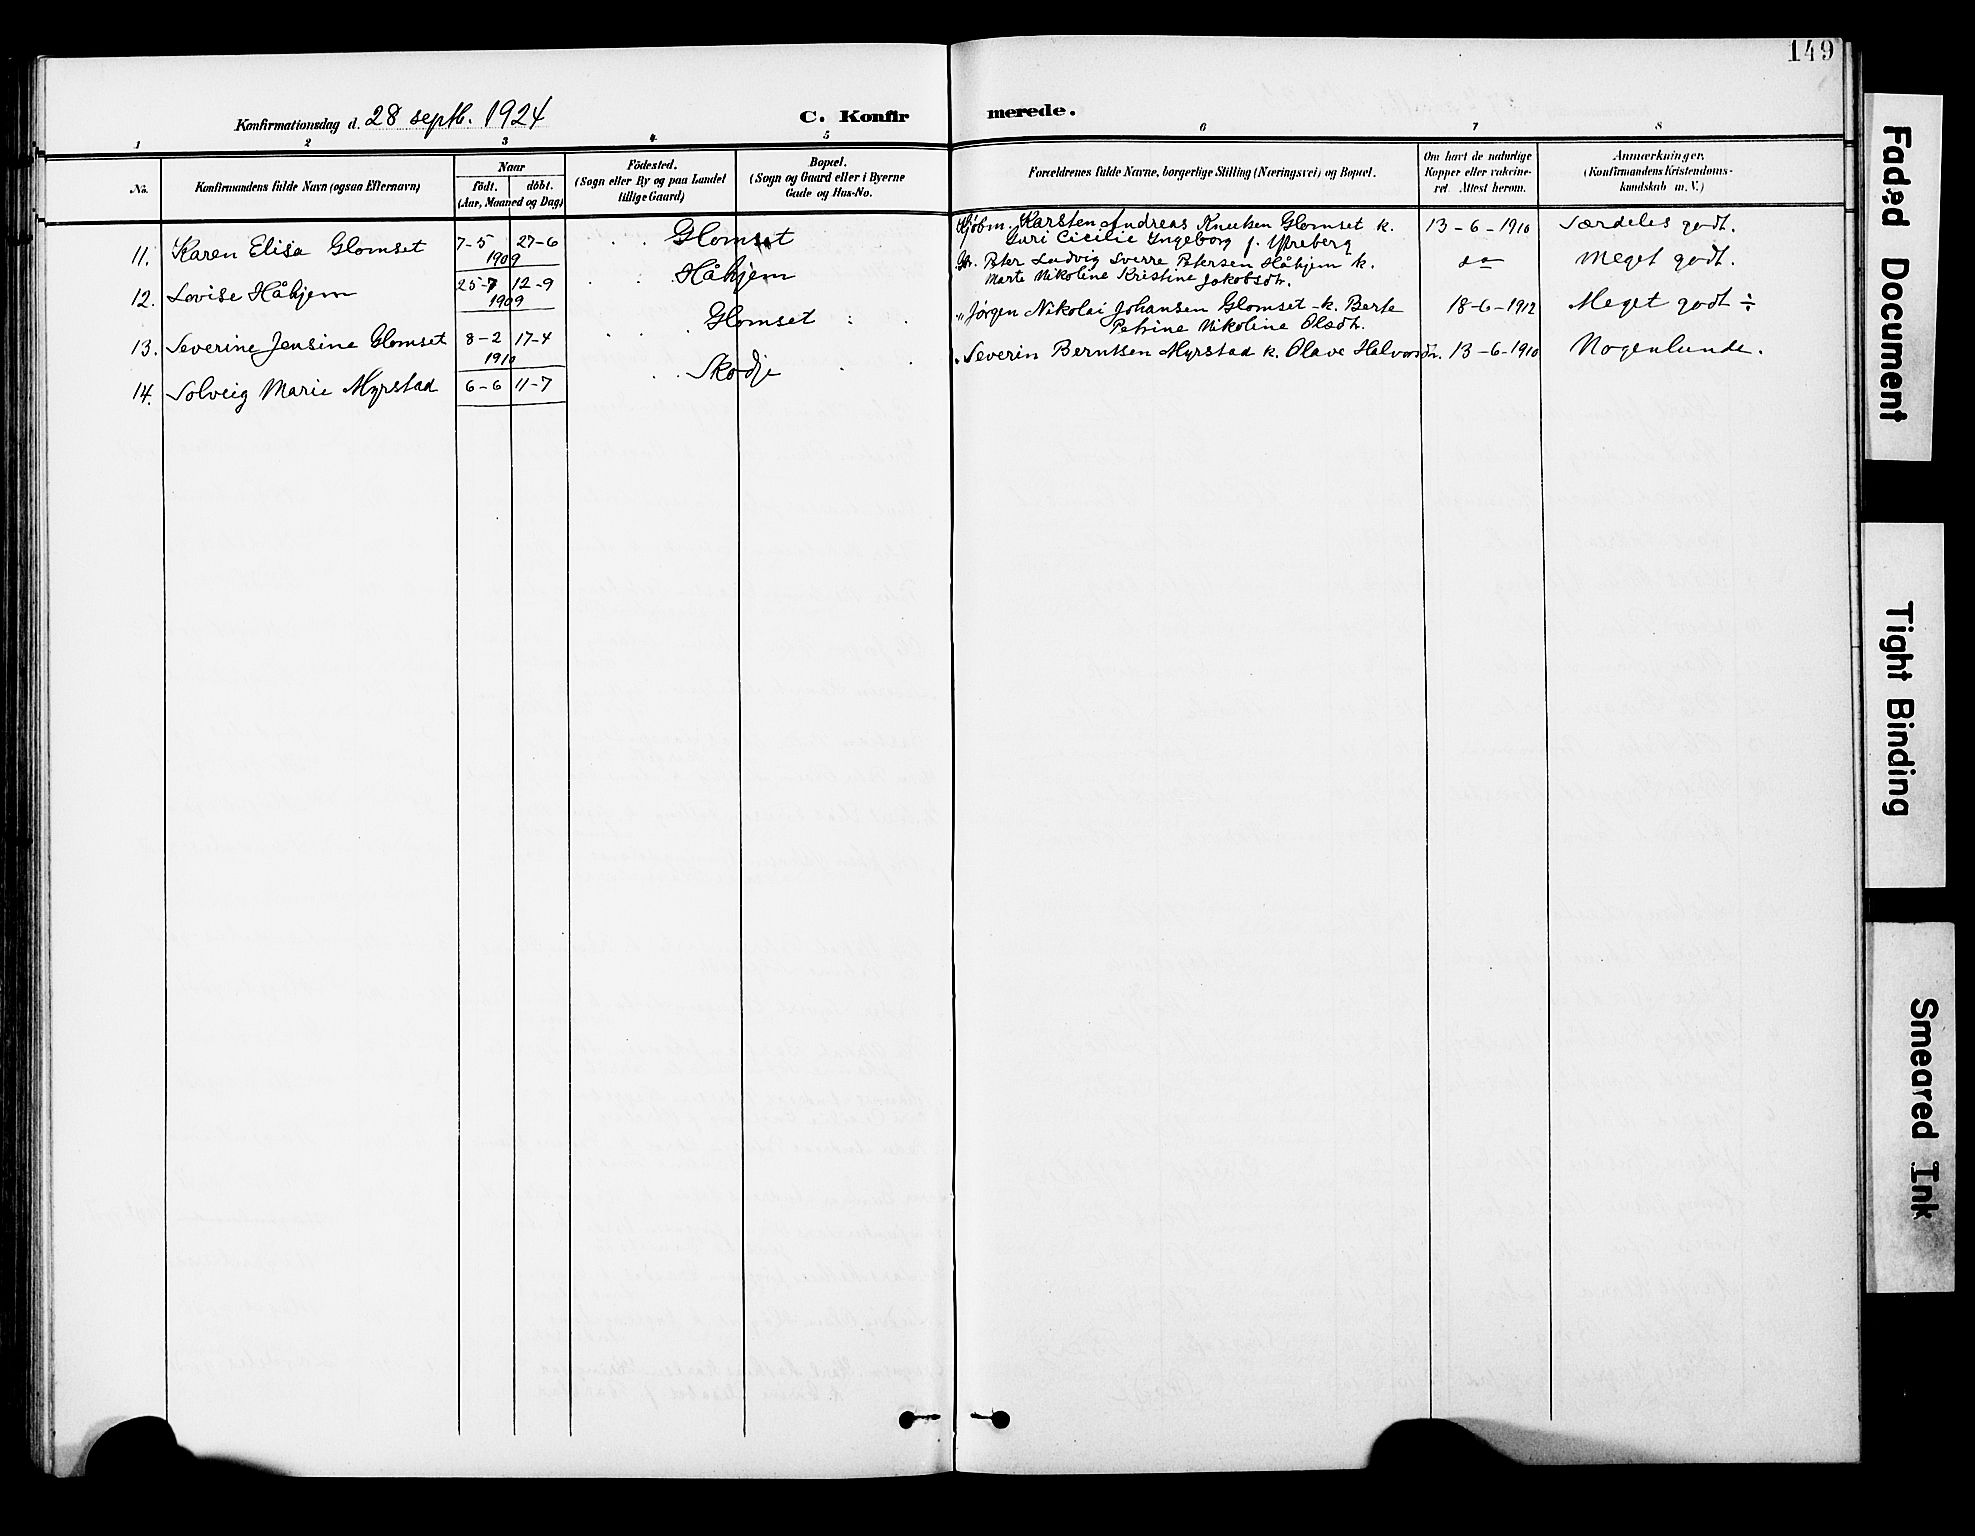 149
Konfirmationsdag d. 28 septb. 1924
C. Konfir merede.
1 2 3 4 5 6 7 8
No.
Konfirmandens fulde Navn (ogsaa Efternavn)
Naar
födt. döbt.
(Aar, Maaned og Dag)
Födested.
(Sogn eller By og paa Landet
tillige Gaard)
Bopæl.
(Sogn og Gaard eller i Byerne
Gade og Hus-No.
Forældrenes fulde Navne, borgerlige Stilling (Næringsvei) og Bopæl.
Om havt de naturlige
Kopper eller vakcine-
ret. Attest herom.
Anmærkninger.
(Konfirmandens Kristendoms-
kundskab m. V.)
11. Karen Elisa Glomset 7-5 27-6 1909 Glomset
Kjøbm. Karsten Andreas Knutsen Glomset k.
Guri Cicilie Ingeborg f. Ytreberg
13-6-1910 Særdeles godt.
12. Lovise Håhjem 25-7 12-9 1909 Håhjem
Gbr. Peter Ludvig Sverre Petersen Håhjem k.
Marte Nikoline Kristine Jakobsdtr.
do Meget godt.
13. Severine Jensine Glomset 8-2 17-4 1910 Glomset
" Jørgen Nikolai Johansen Glomset - k. Berte
Petrine Nikoline Olsdtr.
18-6-1912 Meget godt ÷
14. Solveig Marie Myrstad 6-6 11-7 Skodje
" Severin Berntsen Myrstad k. Olave Halvorsdtr. 13-6-1910 Nogenlunde.
Faded Document
Tight Binding
Smeared Ink